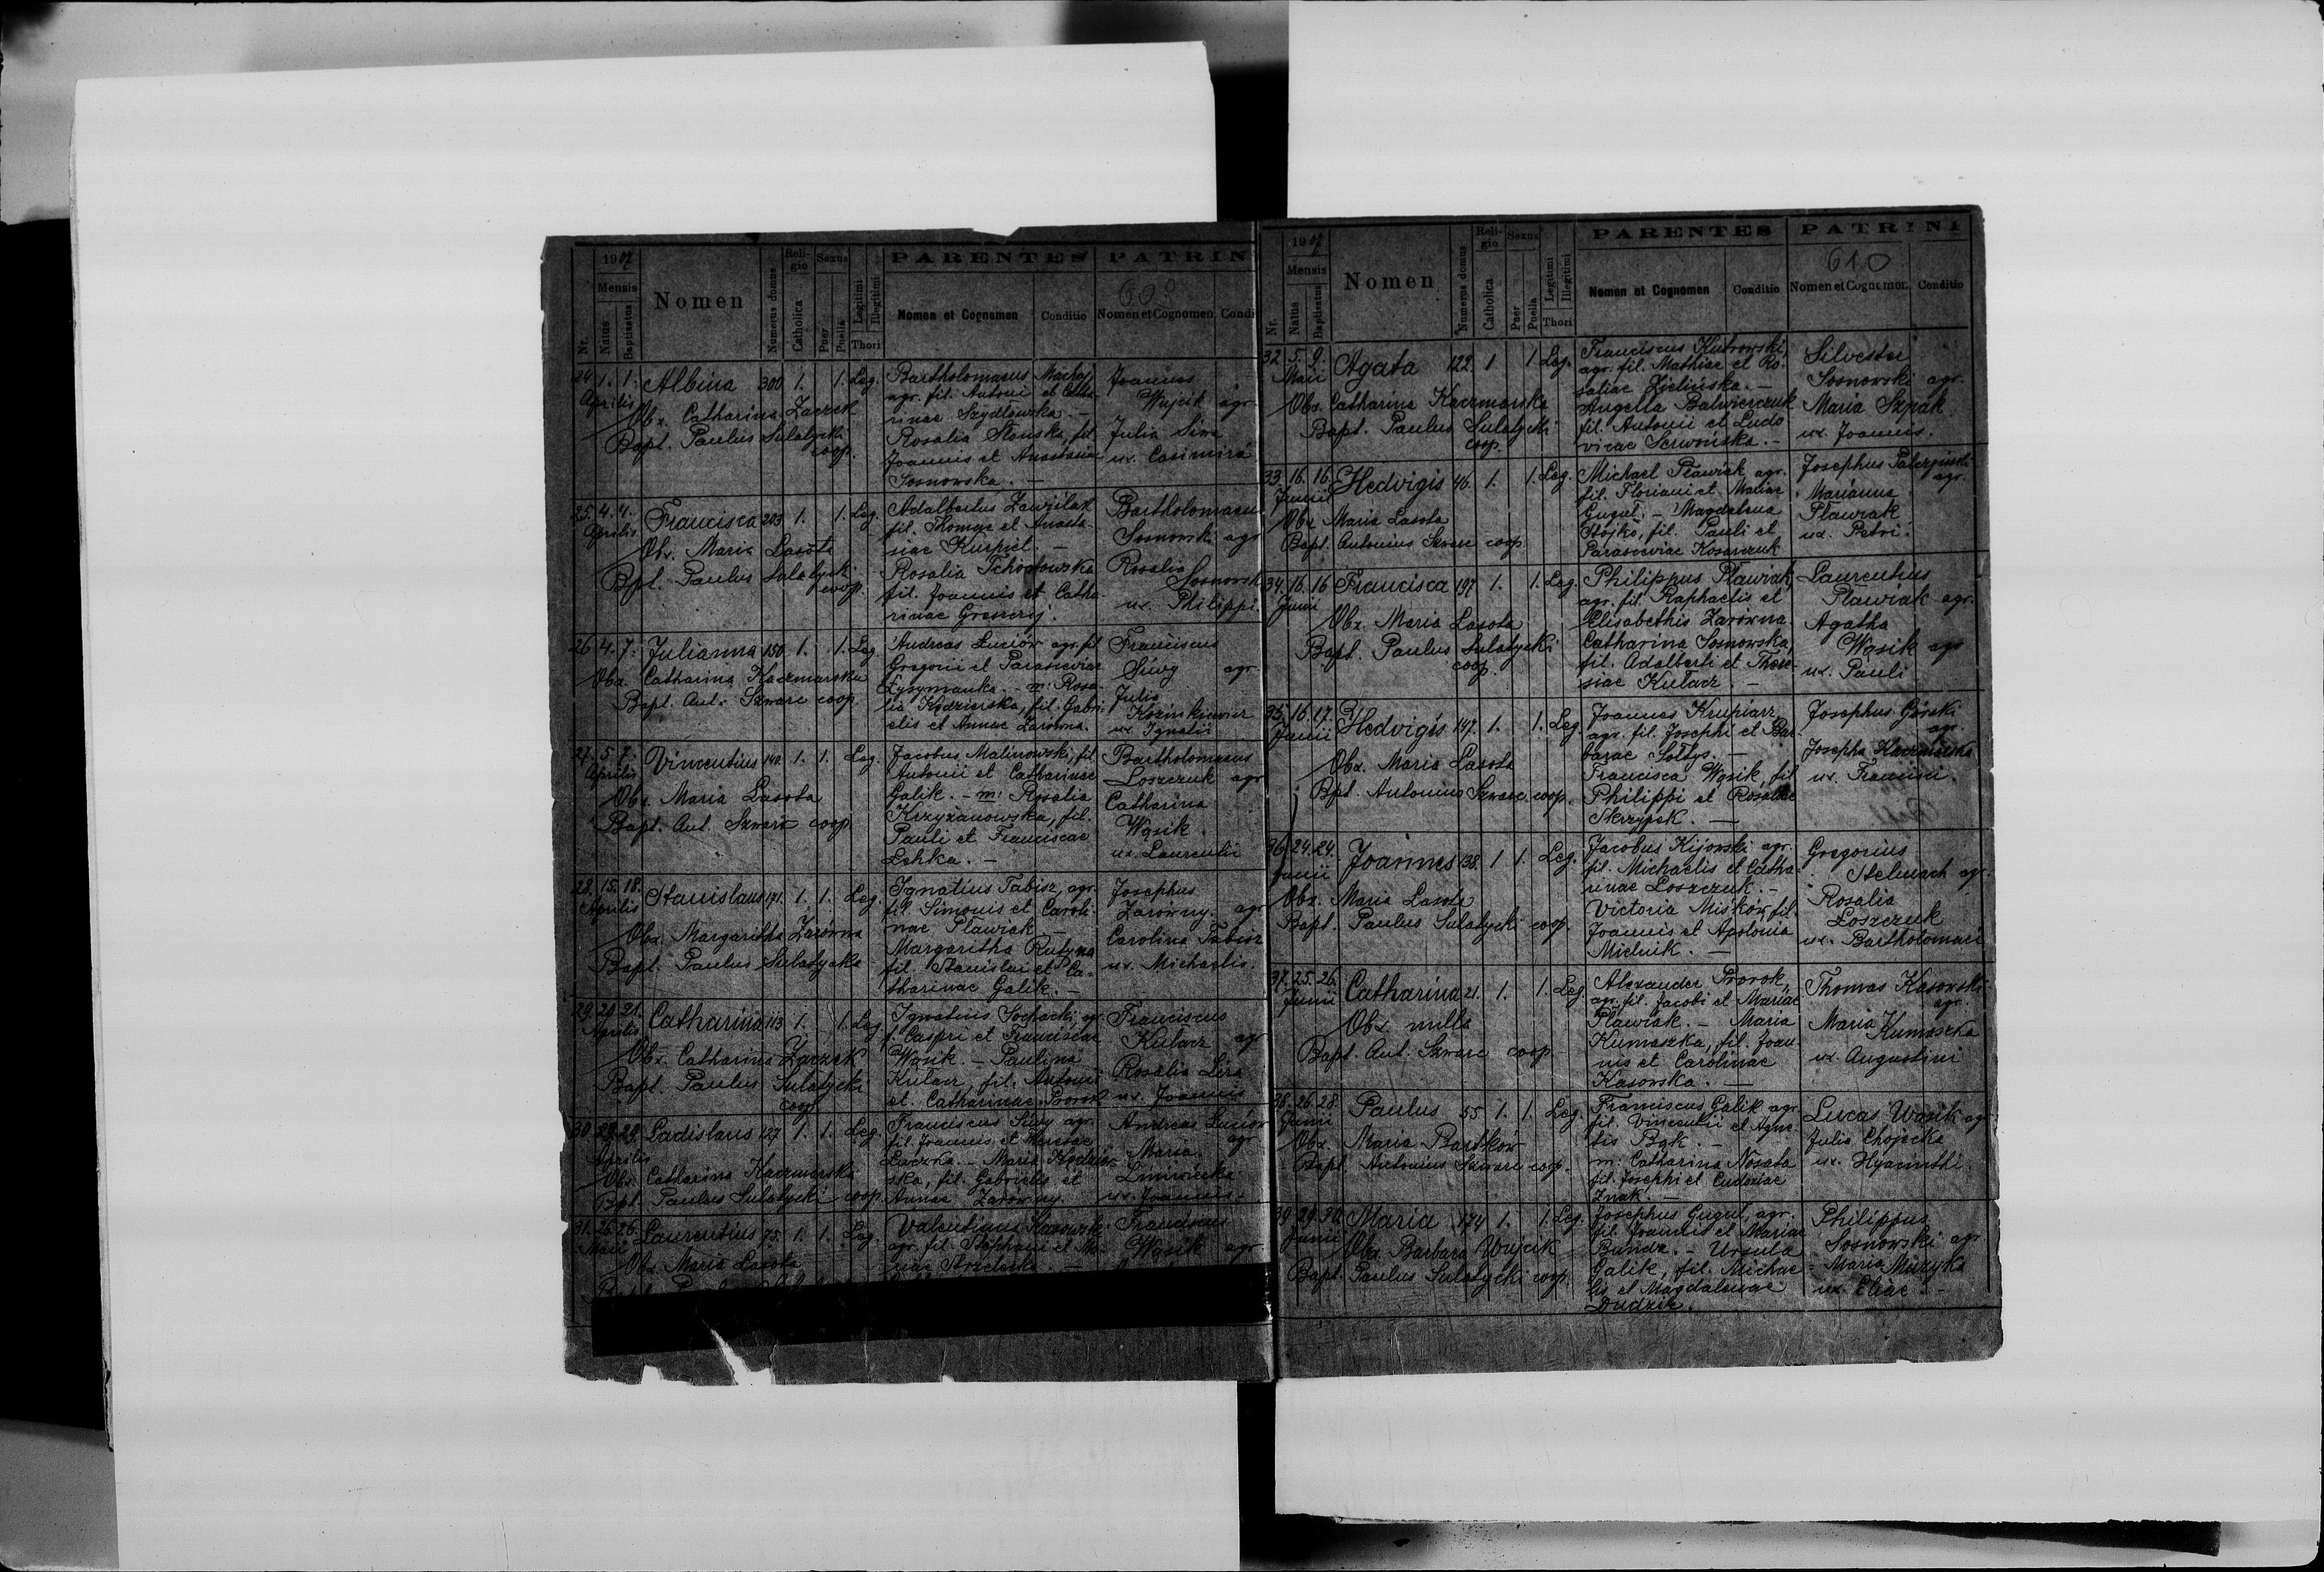 1907
Mensis
Nr.
Natus
Baptisatus
Nomen
Numerus domus
Religio
Catholica
Sexus
Puer
Puella
Legitimi
Illegitimi
Thori
PARENTES
Nomen et Cognomen
Conditio
PATRIN
Nomen et Cognomen
Condi
24 1. 1. Albina 300 1. 1. Leg.
Aprilis
Obx. Catharina Zaczek
Bapt. Paulus Sulatycki
coop.
Bartholomaeus Machaj
agr. fil. Antoni et Catha
rinae Szydłowska. -
Rosalia Słonska, fil.
Joannis et Anastasiae
Sosnowska. -
Joannes
Wujcik agr.
Julia Siwa
ux. Casimira
25. 4. 4. Francisca 203 1. 1. Leg.
Aprilis
Obx. Maria Lasota
Bpt. Paulus Sulatycki
coop.
Adalbertus Zawiślak
fil. Thomae et Anasta-
siae Kurpiel. -
Rosalia
fil. Joannis et Catha-
rinae
Bartholomaeus
Sosnowski agr
Rosalia
Sosnowsk
ux. Philippi
26 4. 7. Julianna 150 1. 1. Leg.
Obx. Catharina Kaczmarska
Bapt. Ant. Szwarc coop.
Andreas Luciów agr. fil
Gregorii et Parasceviae
Łysymanka. - m: Rosa-
lia Kędzierska, fil. Gabri-
elis et Annae Żarówna.
Franciscus
Siwy agr
Julia
ux Ignatii
27. 5. 7. Vincentius 140. 1. 1. Leg.
Aprilis
Obx. Maria Lasota
Bapt. Ant. Szwarc coop
Jacobus Malinowski, fil
Antonii et Catharinae
Galik. - m: Rosalia
Krzyżanowska, fil.
Pauli et Franciscae
Lehka. -
Bartholomaeus
Loszczuk agr
Catharina
Wąsik
ux. Laurentii
28. 15. 18. Stanislaus 171. 1. 1. Leg
Aprilis
Obx. Margaritha Żarówna
Bapt. Paulus Sulatycki
Ignatius Tabisz, agr.
fil. Simonis et Caroli-
nae Pławiak -
Margaritha Rutyna
fil. Stanislai et Ca-
tharinae Galik. -
Josephus
Żarówny. agr
Carolina Tabisz
ux. Michaelis.
29. 20. 21. Catharina 113 1. 1. Leg
Aprilis
Obx. Catharina Zaczek
Bapt. Paulus Sulatycki
coop
Ignatius Sochacki, agr.
f. Caspri et Franciscae
Wąsik - Paulina
Kularz, fil. Antonii
et. Catharinae Prorok
Franciscus
Kularz agr
Rosalia Lira
ux. Joannis
30 29. 29. Ladislaus 127 1. 1. Leg.
Aprilis
Obx. Catharina Kaczmarska
Bpt. Paulus Sulatycki coop.
Franciscus Siwy agr.
fil. Joannis et Theresae
Maria Kędzier-
ska, fil. Gabrielis et
Annae Żarówny.
Andreas Luciów
agr
Maria
ux. Joannis.
31. 26. 26. Laurentius 75. 1. 1. Leg.
Maii
Obx. Maria Lasota
Valentinus Kasowski
agr. fil. Stephani et Ma-
riae Strzelecka. -
Franciscus
Wąsik agr
1907
Mensis
Nr.
Natus
Baptisatus
Nomen
Numerus domus
Religio
Catholica
Sexus
Puer
Puella
Legitimi
Illegitimi
Thori
PARENTES
Nomen et Cognomen
Conditio
PATRINI
610
Nomen et Cognomen
Conditio
32 5. 9. Agata 122. 1 1. Leg.
Maii
Obx. Catharina Kaczmarska
Bapt. Paulus Sulatycki
coop.
Franciscus Kutrowski,
agr. fil. Mathiae et Ro-
saliae Zielińska. -
Angella Balwierczuk
fil. Antonii et Ludo
vicae Serwońska. -
Silvester
Sosnowski agr.
Maria Szpak
ux. Joannis.
33. 16. 16. Hedvigis 46. 1. 1. Leg.
Junii
Obx Maria Lasota
Bapt. Antonius Szwarc coop.
Michael Pławiak agr.
fil. Floriani et Mariae
Gugul. - Magdalena
Bojko, fil. Pauli et
Parasceviae Kosarczuk
Josephus
agr.
Marianna
Pławiak
ux. Petri.
34. 16. 16 Francisca 197 1. 1. Leg.
Junii
Obx. Maria Lasota
Bapt. Paulus Sulatycki
coop.
Philippus Pławiak
agr. fil. Raphaelis et
Elisabethis Żarówna
Catharina Sosnowska,
fil. Adalberti et There-
siae Kularz. -
Laurentius
Pławiak agr.
Agatha
Wąsik agr
ux. Pauli
35. 16. 17. Hedvigis 147. 1. 1. Leg.
Junii
Obx. Maria Lasota
Bpt. Antonius Szwarc. coop.
Joannes Krupiarz
agr. fil. Josephi et Bar-
barae Sołtys. -
Francisca Wąsik, fil
Philippi et Rosaliae
Skrzypek. -
Josephus Górski
agr.
Josepha Kaczmarska
ux. Francisci.
36. 24. 24. Joannes 138. 1 1. Leg.
Junii
Obx. Maria Lasota
Bapt. Paulus Sulatycki coop.
Jacobus Kijowski agr.
fil. Michaelis et Catha-
rinae Loszczuk. -
Victoria Miśków, fil.
Joannis et Apolonia
Mielnik. -
Gregorius
Stelmach agr.
Rosalia
Loszczuk
ux. Bartholomaei
37. 25. 26. Catharina 21. 1. 1. Leg.
Junii
Obx. nulla
Bapt. Ant. Szwarc coop.
Alexander Prorok,
agr. fil. Jacobi et Mariae
Pławiak. - Maria
Kumaszka, fil. Joan-
nis et Carolinae
Kasowska. -
Thomas Kasowski
agr.
Maria Kumaszka
ux. Augustini
38. 26. 28. Paulus 55 1. 1. Leg
Junii
Obx. Maria Bartków
Bapt. Antonius Szwarc coop.
Franciscus Galik agr.
fil. Vincentii et Agne-
tis Bąk. -
m: Catharina Nosata
fil. Josephi et Eudoxiae
Znak. -
Lucas Wąsik agr
Julia Chojecka
ux. Hyacinthi.
39. 29. 30. Maria 174 1. 1. Leg.
Junii
Obx. Barbara Wujcik
Bapt. Paulus Sulatycki coop.
Josephus Gugul, agr.
fil. Joannis et Mariae
Bundz. - Ursula
Galik, fil. Michae-
lis et Magdalenae
Dudzik.
Philippus
Sosnowski agr
Maria Muzyka
ux. Eliae. -